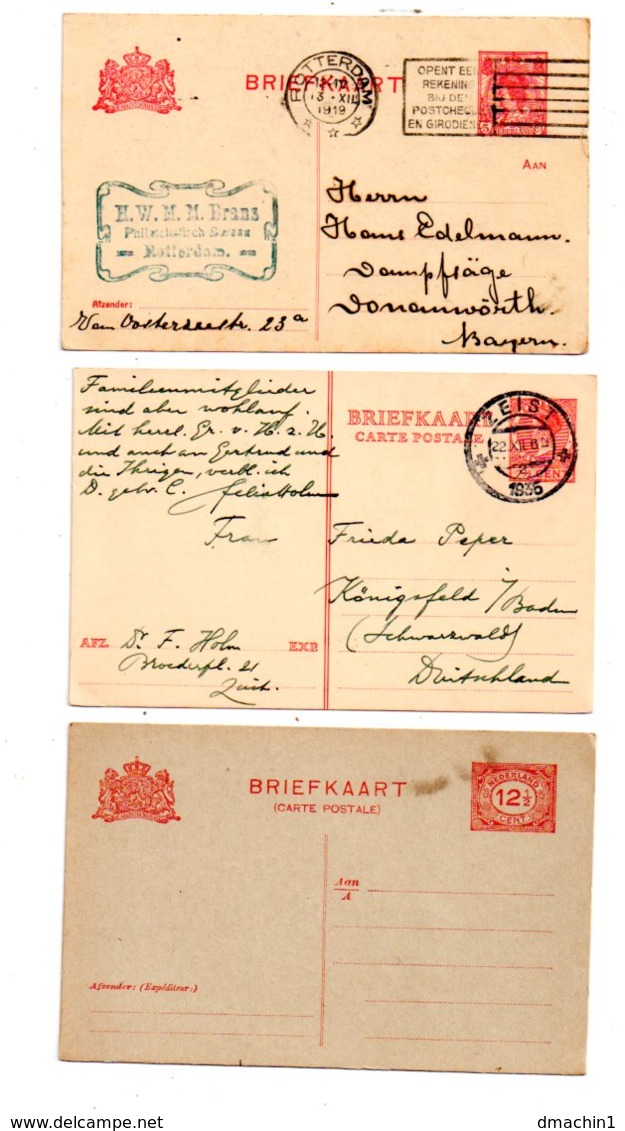 BRIEFKAART
ROTTERDAM
13 XII
1919
OPENT EEN
REKENING
BIJ DEN
POSTCHEQUE
EN GIRODIENST
AAN
H. W. M. M. Brans
Philatelistisch Bureau
Rotterdam.
Herrn
Hans Edelmann.
Dampfsäge
Donauwörth.
Bayern.
Afzender:
Van Oosterzeestr. 23a
Familienmitglieder
sind aber wohlauf.
Mit herzl. Gr. v. H. z. H.
und auch an Gertrud und
die Ihrigen, verbl. ich
D. getr. C. Felix Holm
BRIEFKAART
CARTE POSTALE
ZEIST
22 XII
1936
CENT
Frau Frieda Peper
Königsfeld i/Baden
(Schwarzwald)
Deutschland
AFZ. Dr. F. Holm EXP.
Broederpl. 21
Zeist.
BRIEFKAART
(CARTE POSTALE)
NEDERLAND
12½
CENT
Aan
A
Afzender: (Expéditeur:)
dmachin1